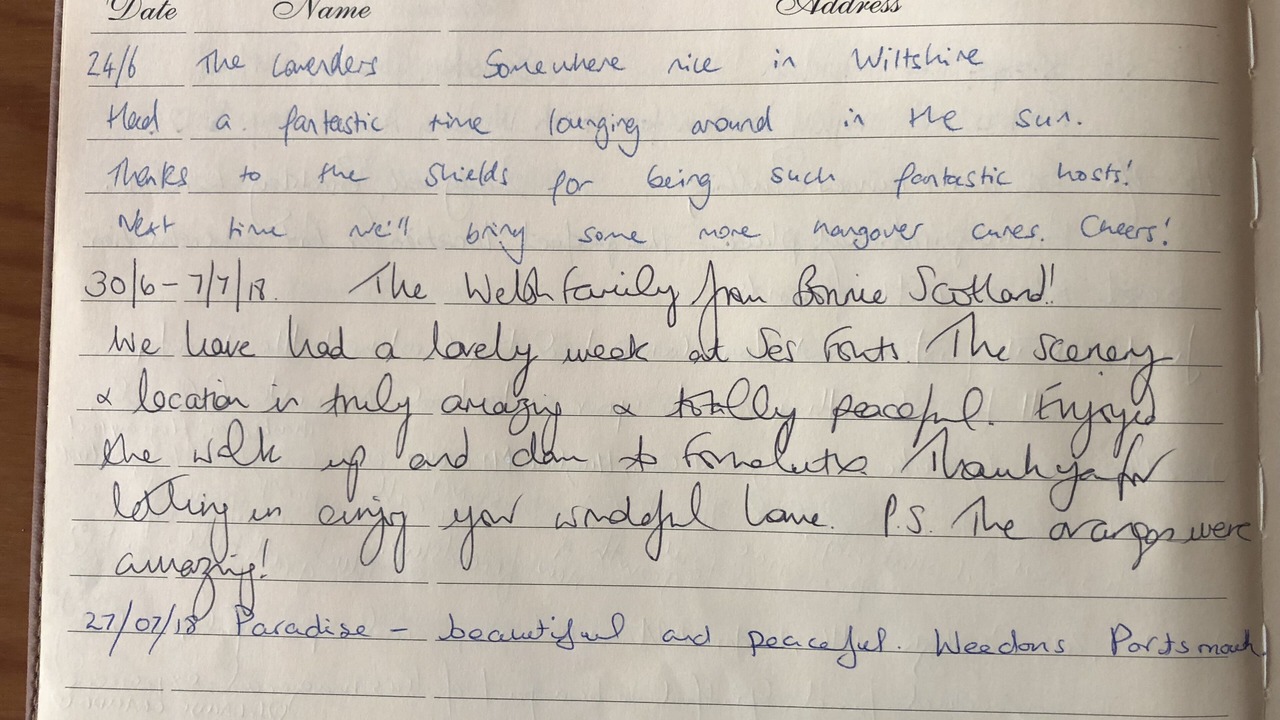 Date Name Address
24/6 The Lavenders Somewhere nice in Wiltshire
Had a fantastic time lounging around in the sun.
Thanks to the Shields for being such fantastic hosts!
Next time we'll bring some more hangover cures. Cheers!
30/6 - 7/7/18. The Welsh Family from Bonnie Scotland!
We have had a lovely week at Ses Fonts. The scenery
& location is truly amazing & totally peaceful. Enjoyed
the walk up and down to Fornalutx. Thank you for
letting us enjoy your wonderful home. P.S. The oranges were
amazing!
27/07/18 Paradise - beautiful and peaceful. Weedons Portsmouth.